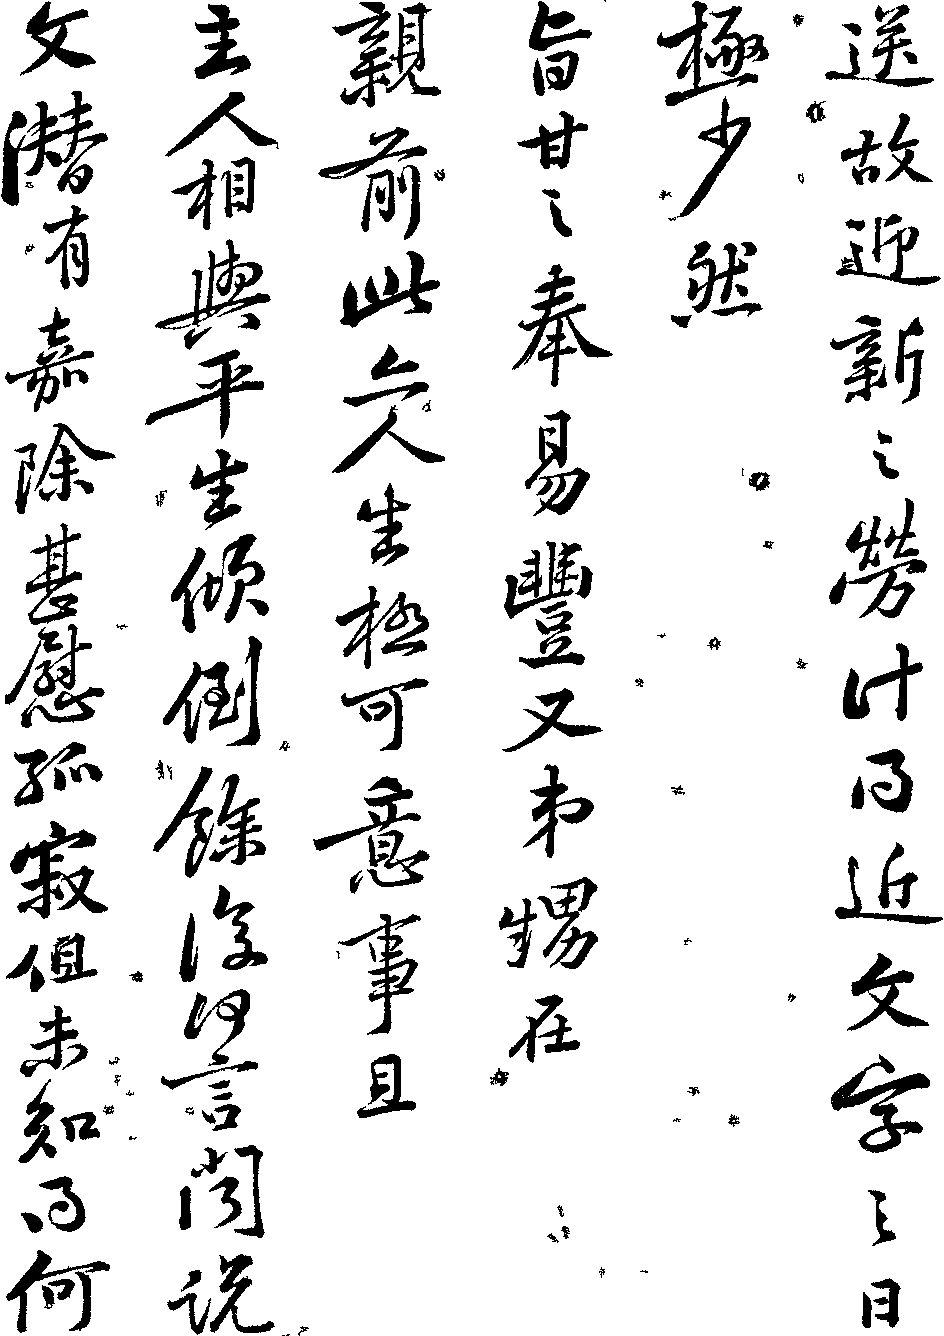 送故迎新之勞計得近文字之日
極少然
旨甘之奉易豐又弟甥在
親前此亦人生極可意事且
主人相與平生傾倒餘復何言聞說
文潛有嘉除甚慰孤寂但未知得何